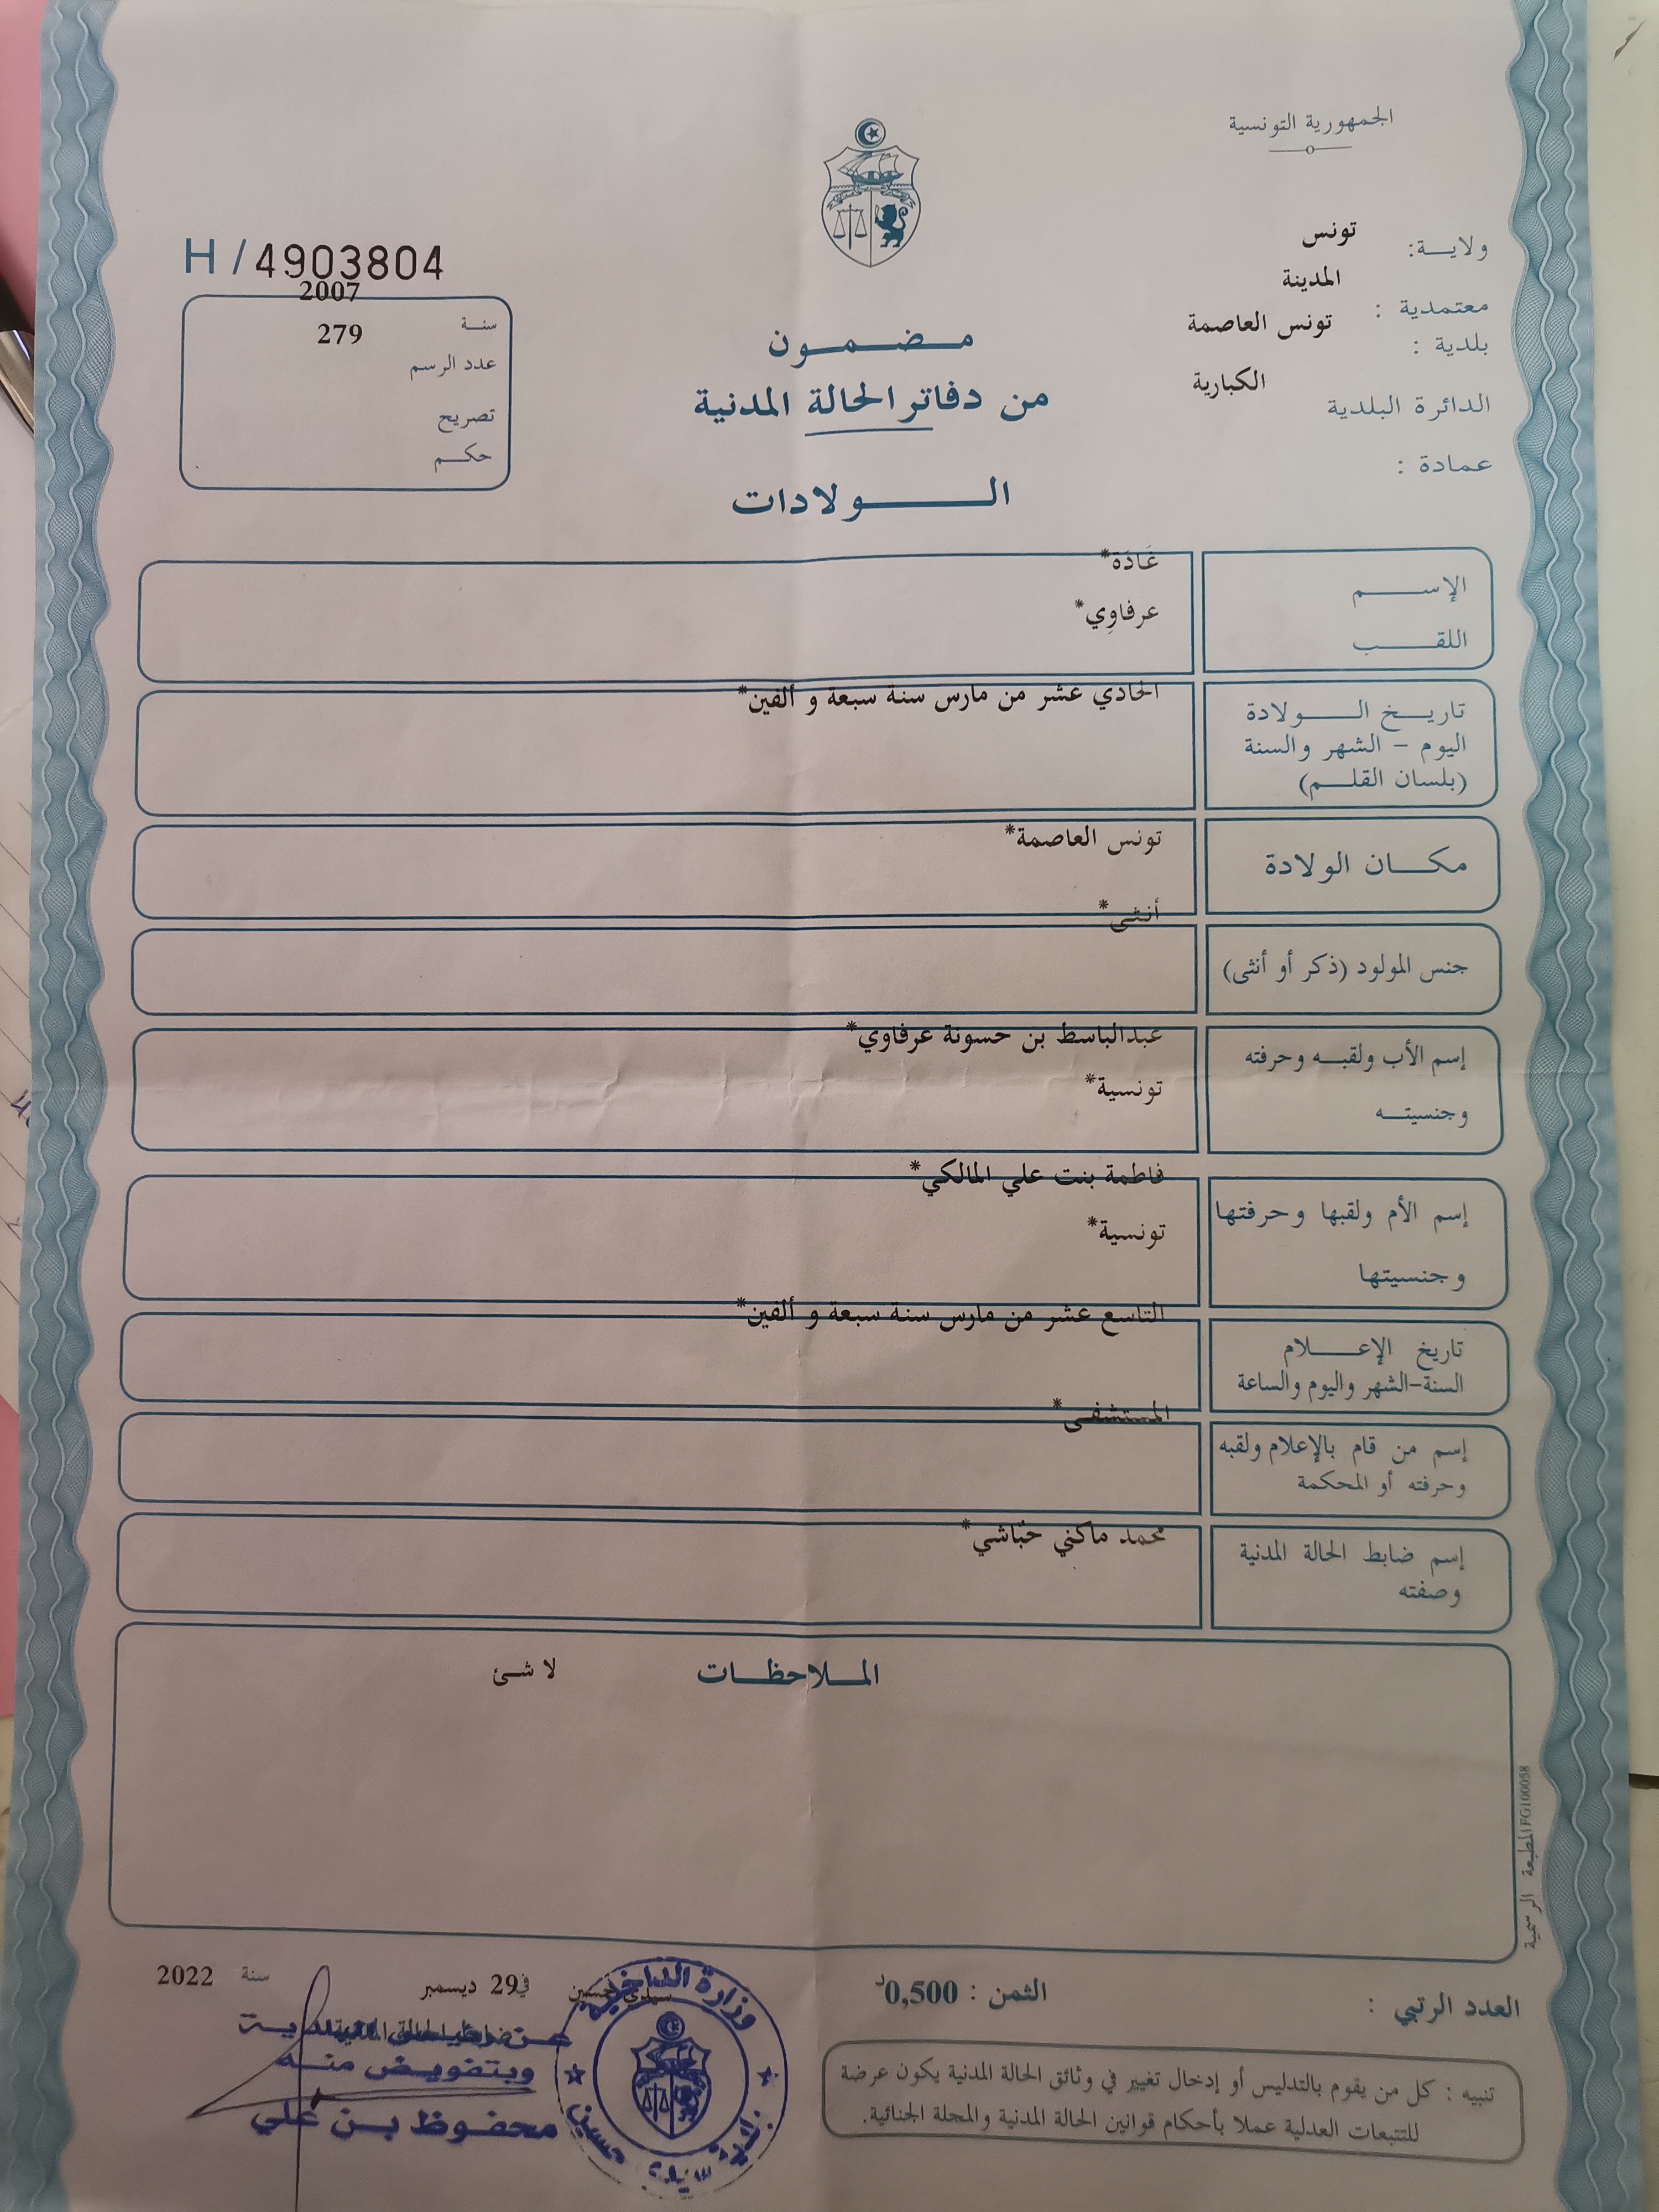 الجمهورية التونسية
ولايـــة: تونس
معتمدية : المدينة
بلدية : تونس العاصمة
الدائرة البلدية الكبارية
عمادة :
H/4903804
سنــة 2007
عدد الرسم 279
تصريح
حكـــم
مـــضـــمـــون
من دفاتر الحالة المدنية
الـــــولادات
الإســــــم غَادَة*
اللقــــــب عرفاوِي*
تاريـــخ الـــــولادة الحادي عشر من مارس سنة سبعة و ألفين*
اليوم - الشهر والسنة
(بلسان القلـــم)
مكـــان الولادة تونس العاصمة*
جنس المولود (ذكر أو أنثى) أنثى*
إسم الأب ولقبــه وحرفته عبدالباسط بن حسونة عرفاوي*
وجنسيتــه تونسية*
إسم الأم ولقبها وحرفتها فاطمة بنت علي المالكي*
وجنسيتها تونسية*
تاريخ الإعـــــلام التاسع عشر من مارس سنة سبعة و ألفين*
السنة-الشهر واليوم والساعة
إسم من قام بالإعلام ولقبه المستشفى*
وحرفته أو المحكمة
إسم ضابط الحالة المدنية محمد ماكني حبّاشي*
وصفته
المـــلاحظـــات لا شئ
المطبعة الرسمية FG100058
العدد الرتبي :
الثمن : 0,500د
سيدي حسين في 29 ديسمبر سنة 2022
وبتفويض منـــه
محفـــوظ بـــن علي
وزارة الداخلية
بلدية سيدي حسين
تنبيه : كل من يقوم بالتدليس أو إدخال تغيير في وثائق الحالة المدنية يكون عرضة
للتتبعات العدلية عملا بأحكام قوانين الحالة المدنية والمجلة الجنائية.